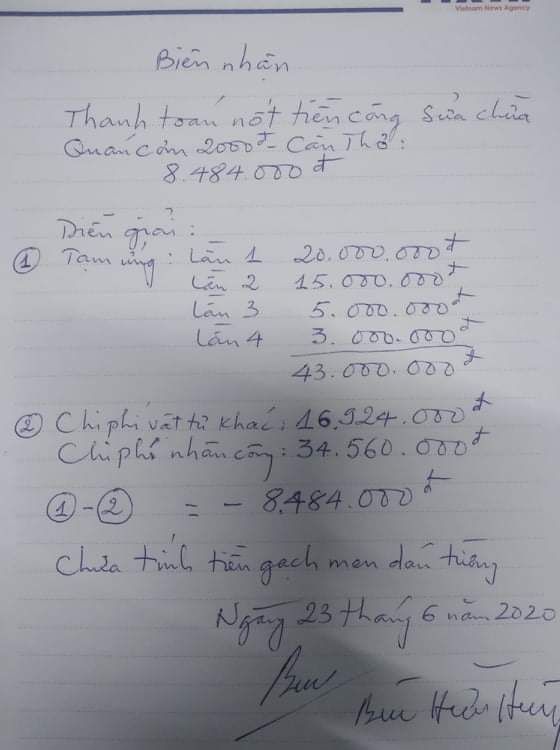 Vietnam News Agency
Biên nhận
Thanh toán nốt tiền công sửa chữa
Quán cơm 2000đ - Cần Thơ:
8.484.000đ
Diễn giải:
① Tạm ứng: Lần 1 20.000.000đ
Lần 2 15.000.000đ
Lần 3 5.000.000đ
Lần 4 3.000.000đ
43.000.000đ
② Chi phí vật tư khác: 16.924.000đ
Chi phí nhân công: 34.560.000đ
① - ② = - 8.484.000đ
Chưa tính tiền gạch men dán tường
Ngày 23 tháng 6 năm 2020
Bùi